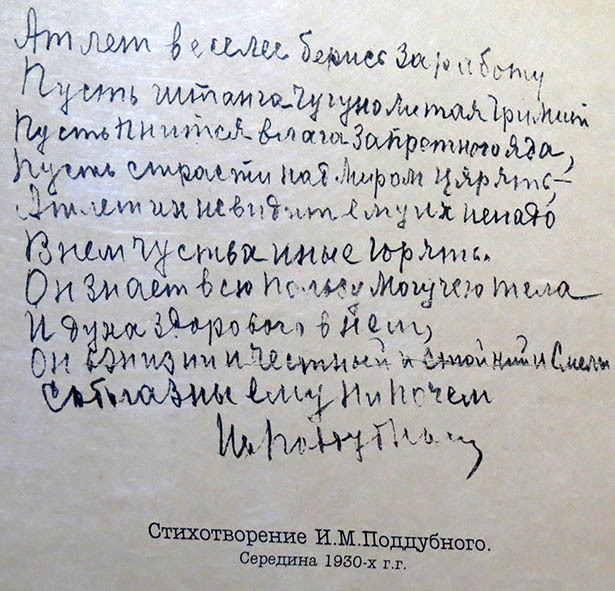 Атлет веселее берись за работу
Пусть штанга чугунолитая гримит
Пусть пнится влага запретного яда,
Пусть страсти над миром царять –
Атлет их невидит ему их ненадо
В нем чуства иные горять.
Он знает всю пользу могучего тела
И духа здорового в нем,
Он в жизни и честный и стойкий и смелы
Соблазны ему нипочем
Ив Поддубный
Стихотворение И.М.Поддубного.
Середина 1930-х г.г.